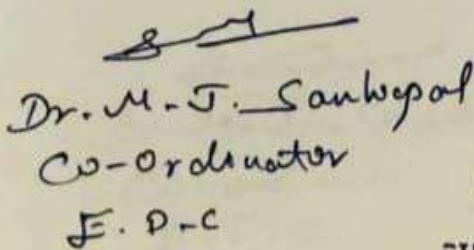 Dr. M. J. Sankapal
Co-Ordinator
E. D. C